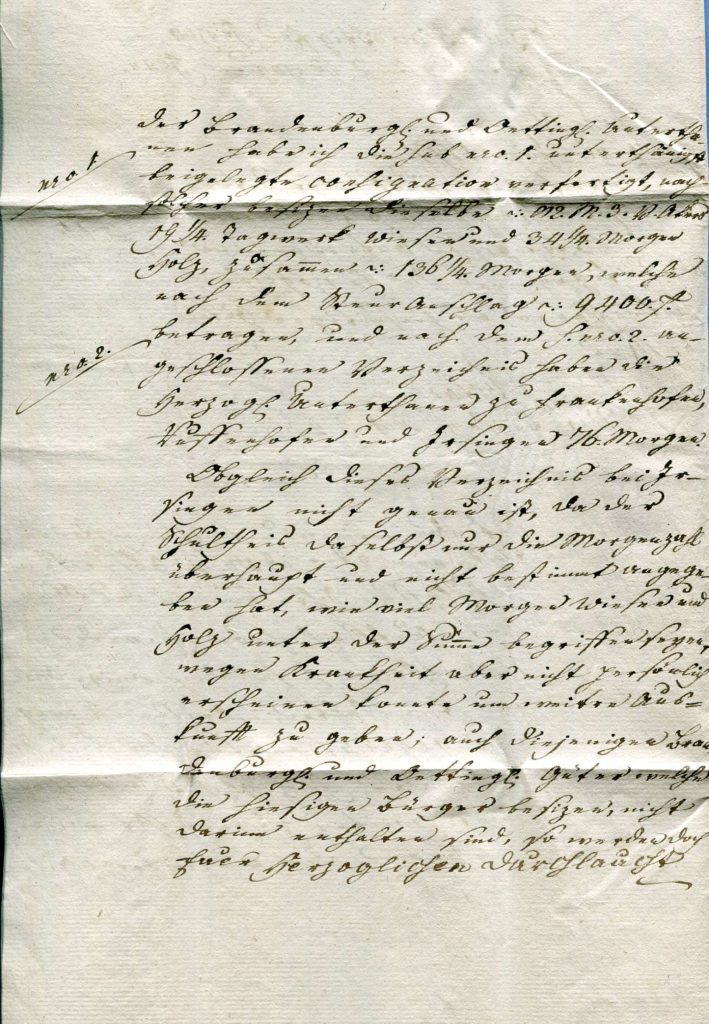 der Brandenburgl. und Oettingl. Untertha-
nro. 1.
nen habe ich die sub nro. 1. unterthänigst
beigelegte Consignation verfertigt, nach
besizen dieselbe M. 3. V. Akers
19 1/4. Tagwerk Wiesen und 34 1/4. Morgen
Holz, zusammen 136 1/4. Morgen, welche
nach dem Steur Anschlag 9400. f.
betragen, und nach dem nro. 2. an-
nro. 2.
geschlossenen Verzeichnis haben die
Herzogl. Unterthanen zu Frankenhofen,
und Irsingen 76. Morgen.
Obgleich dieses Verzeichnis bei Ir-
singen nicht genau ist, da der
Schultheis daselbst nur die Morgenzahl
überhaupt und nicht bestimmt angege-
ben hat, wie viel Morgen Wiesen und
Holz unter der Summe begriffen seyen,
wegen Krankheit aber nicht persönlich
erscheinen konnte um weitre Aus-
kunfft zu geben; auch diejenigen Bran
denburgl. und Oettingl. Güter welche
die hiesigen Bürger besizen, nicht
darinn enthalten sind, so werden doch
Euer Herzoglichen Durchlaucht